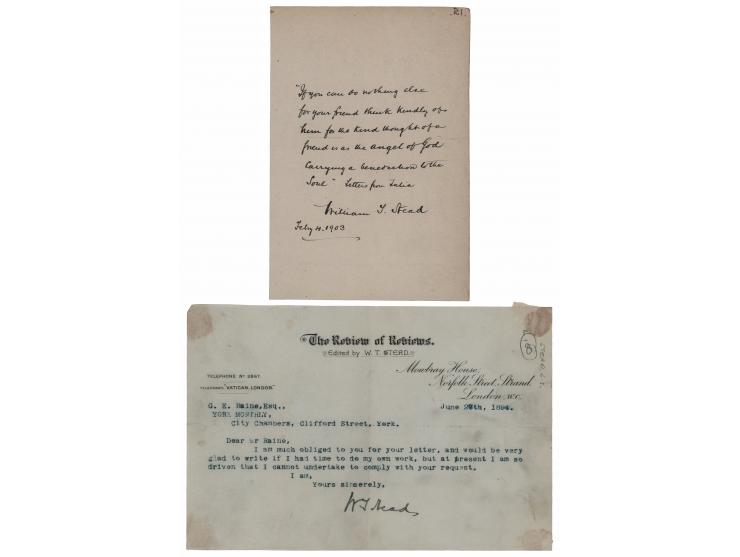 21.
"If you can do nothing else
for your friend think kindly of
him for the kind thought of a
friend is as the angel of God
carrying a benediction to the
Soul" Letters from Julia
William T. Stead
Feby 4. 1903
The Review of Reviews.
Edited by W. T. STEAD.
Mowbray House,
Norfolk Street, Strand,
London, W.C.
TELEPHONE No 2867.
TELEGRAMS "VATICAN, LONDON."
June 27th, 1894.
G. E. Raine, Esq.,
YORK MONTHLY,
City Chambers, Clifford Street, York.
Dear Mr Raine,
I am much obliged to you for your letter, and would be very
glad to write if I had time to do my own work, but at present I am so
driven that I cannot undertake to comply with your request.
I am,
Yours sincerely,
W T Stead